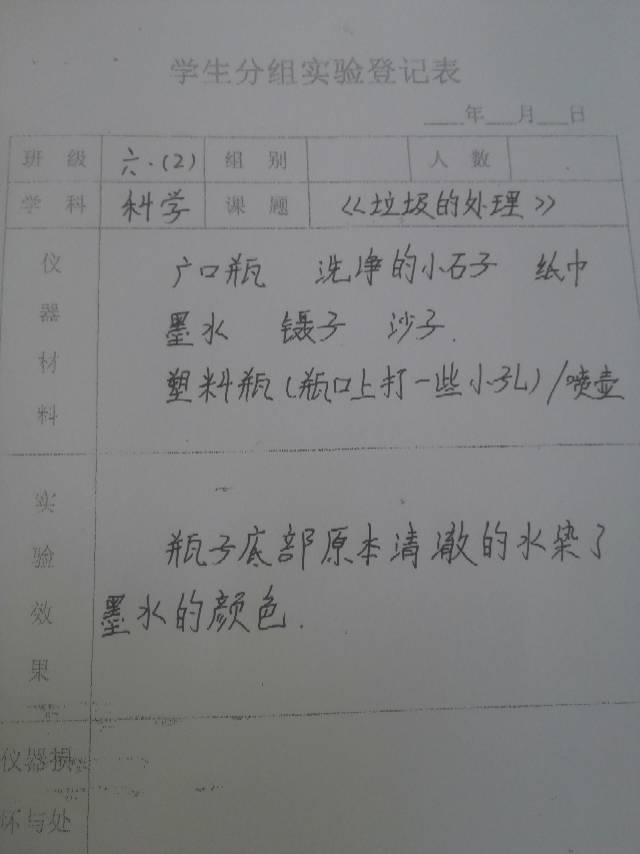 学生分组实验登记表
____年___月___日
班 级 六.(2) 组 别 人 数
学 科 科学 课 题 《垃圾的处理》
仪器材料
广口瓶 洗净的小石子 纸巾
墨水 镊子 沙子.
塑料瓶(瓶口上打一些小孔)/喷壶
实验效果
瓶子底部原本清澈的水染了
墨水的颜色.
仪器损
坏与处